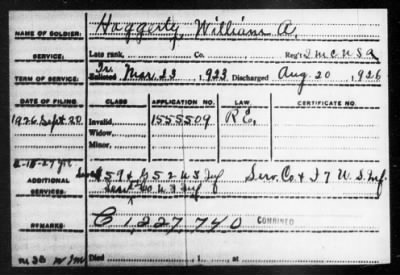 NAME OF SOLDIER: Haggerty, William A.
SERVICE: Late rank, Co., Reg't Q M C U S A
TERM OF SERVICE: Enlisted Mar. 23, 1923 Discharged Aug. 20, 1926
DATE OF FILING CLASS APPLICATION NO. LAW CERTIFICATE NO.
1926 Sept 20 Invalid, 1555509 R E.
Widow,
Minor,
ADDITIONAL SERVICES: 59 & G 52 U S Inf Serv. Co & I 7 U. S. Inf.
REMARKS: C 1,227,740 COMBINED
Died , 1 , at